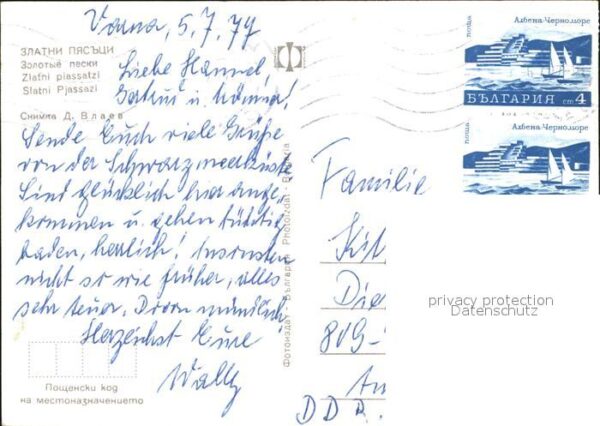 Varna, 5.7.79
ЗЛАТНИ ПЯСЪЦИ
Золотые пески
Zlatni piassatzi
Slatni Pjassazi
Снимка Д. Влаев
Liebe Hannel,
u. Mönna!
Sende Euch viele Grüße
von der Schwarzmeerküste
Sind glücklich hier ange-
kommen u. gehen tüchtig
baden, herrlich! Ansonsten
nicht so wie früher, alles
sehr teuer. Davon mündlich
Herzlichst Eure
Wally
Пощенски код
на местоназначението
Фотоиздат - България Photoizdat - Bulgaria
поща
Албена-Черноморе
БЪЛГАРИЯ ст 4
поща
Албена-Черноморе
Familie
Kit
Die
809-
DDR.
privacy protection
Datenschutz